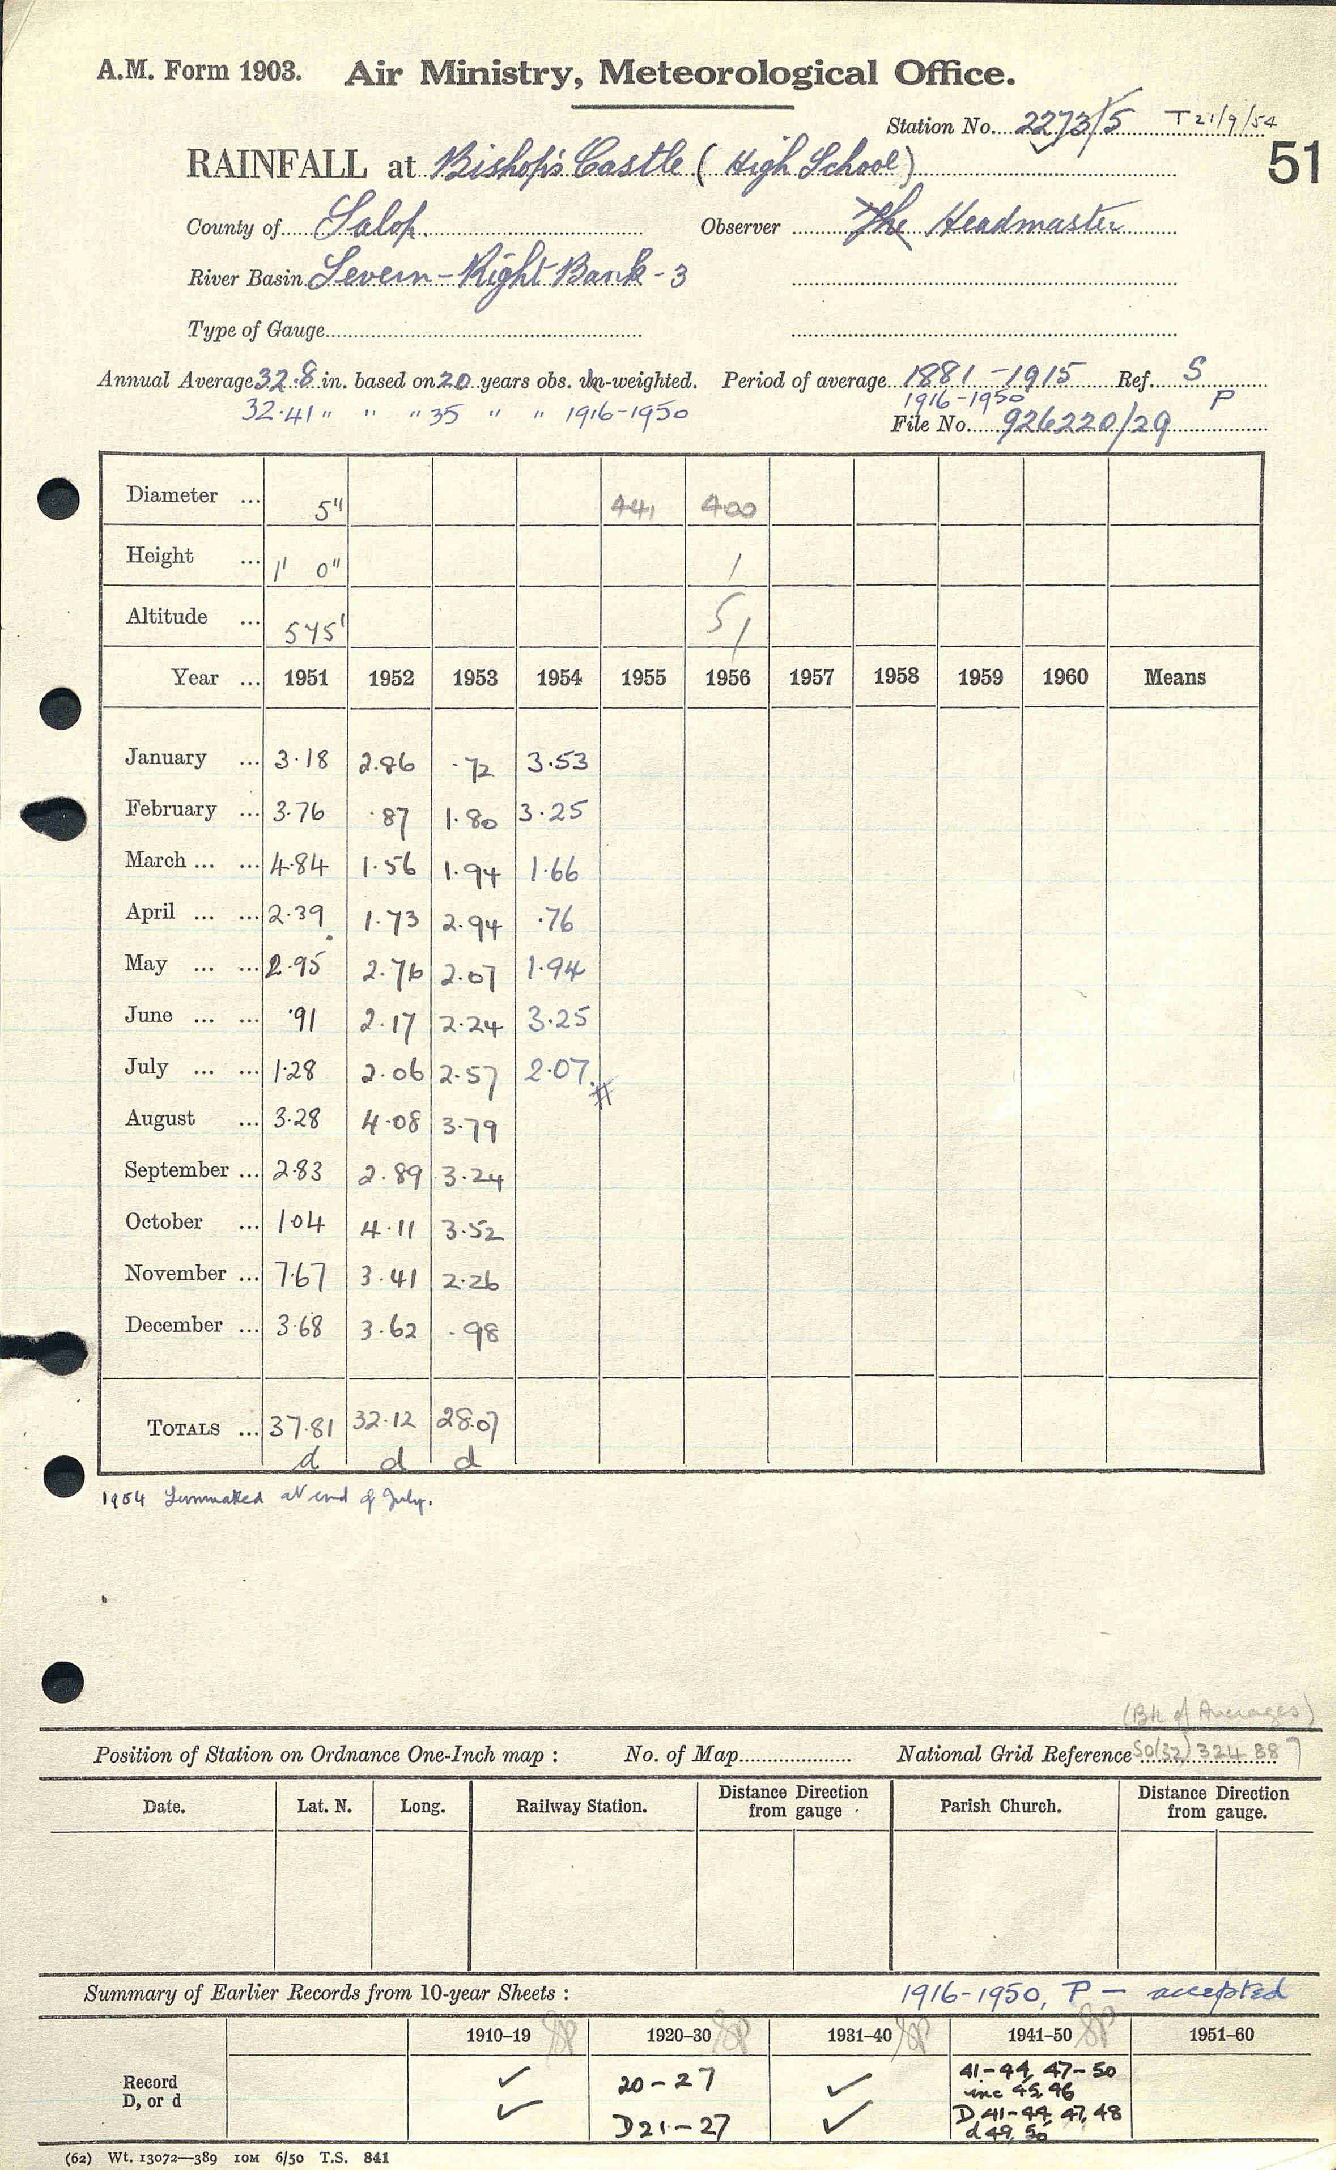 A.M. Form 1903. Air Ministry, Meteorological Office.
Station No. 2273/5 T 21/9/54
51
RAINFALL at Bishop's Castle (High School)
County of Salop. Observer The Headmaster
River Basin Severn - Right Bank - 3
Type of Gauge
Annual Average 32.8 in. based on 20 years obs. un-weighted. Period of average 1881-1915 Ref. S
32.41 " " " 35 " " 1916-1950 1916-1950 P
File No. 926220/29
Diameter ... 5" 441 400
Height ... 1' 0" 1
Altitude ... 575' 51
Year ... 1951 1952 1953 1954 1955 1956 1957 1958 1959 1960 Means
January ... 3.18 2.86 .72 3.53
February ... 3.76 .87 1.80 3.25
March ... ... 4.84 1.56 1.94 1.66
April ... ... 2.39 1.73 2.94 .76
May ... ... 2.95 2.76 2.07 1.94
June ... ... .91 2.17 2.24 3.25
July ... ... 1.28 2.06 2.57 2.07
August ... 3.28 4.08 3.79
September ... 2.83 2.89 3.24
October ... 1.04 4.11 3.52
November ... 7.67 3.41 2.26
December ... 3.68 3.62 .98
TOTALS ... 37.81 32.12 28.07
d d d
1954 Terminated at end of July.
(Bk of Averages)
Position of Station on Ordnance One-Inch map : No. of Map National Grid Reference SO(32) 324 887
Date. Lat. N. Long. Railway Station. Distance Direction from gauge Parish Church. Distance Direction from gauge.
Summary of Earlier Records from 10-year Sheets : 1916-1950, P - accepted
1910-19 1920-30 1931-40 1941-50 1951-60
Record ✓ 20-27 ✓ 41-44, 47-50
unc 45,46
D, or d ✓ D21-27 ✓ D 41-44, 47, 48
d 49, 50
(62) Wt. 13072—389 10M 6/50 T.S. 841